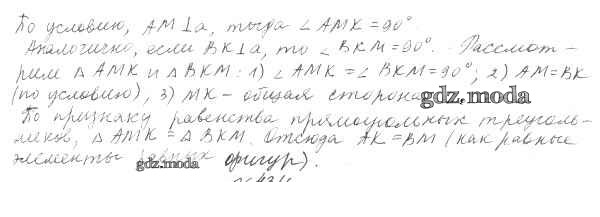 По условию, AM⊥a, тогда ∠AMK = 90°
Аналогично, если BK⊥a, то ∠BKM = 90°. Рассмот-
рим △AMK и △BKM: 1) ∠AMK = ∠BKM = 90°; 2) AM = BK
(по условию), 3) MK - общая сторона
gdz.moda
По признаку равенства прямоугольных треуголь-
ников, △AMK = △BKM. Отсюда AK = BM (как равные
элементы равных фигур).
gdz.moda